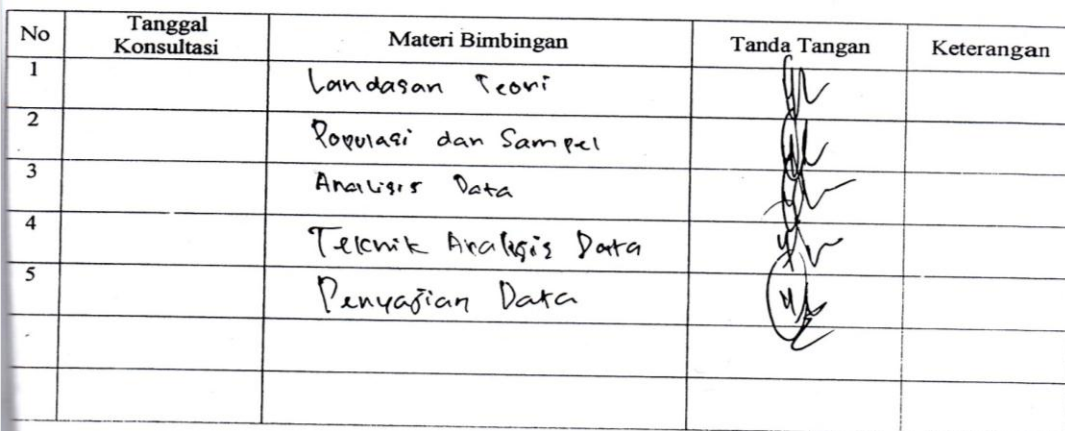 No Tanggal Konsultasi Materi Bimbingan Tanda Tangan Keterangan
1 Landasan Teori
2 Populasi dan Sampel
3 Analisis Data
4 Teknik Analisis Data
5 Penyajian Data